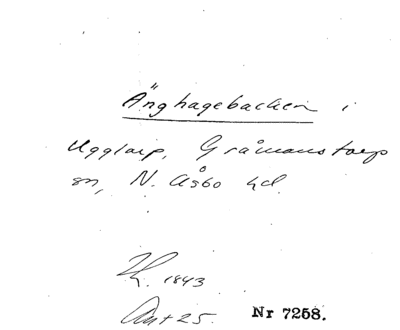 Änghagebacken i
Ugglarp, Gråmanstorp
sn, N. Åsbo hd.
1843
Ant 25.
Nr 7258.